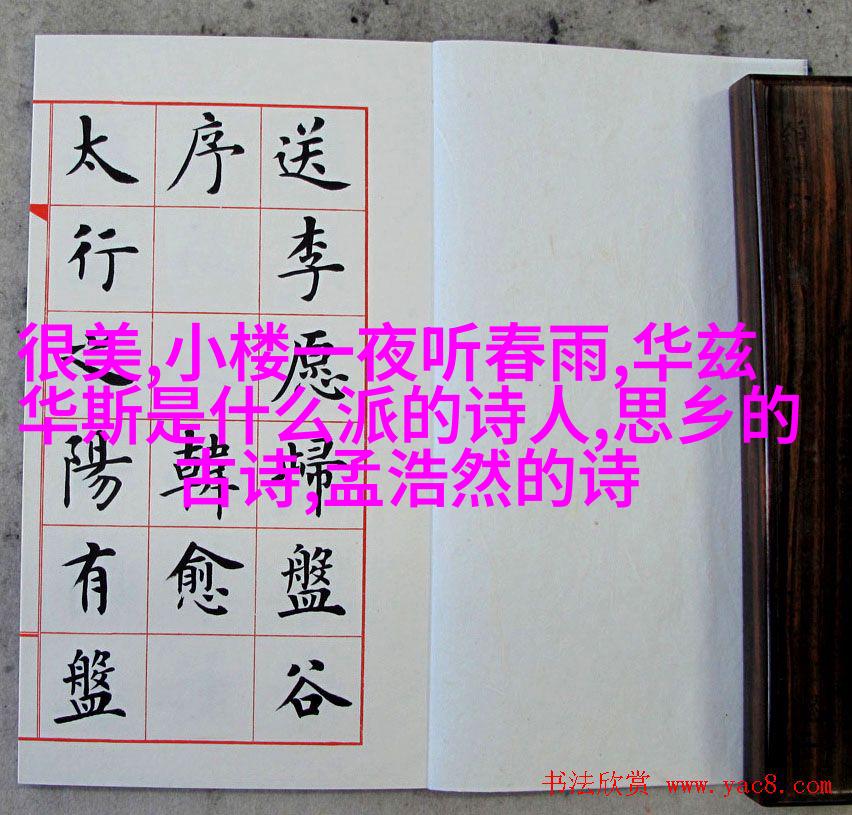 送李愿歸盤谷
序 韓愈
太行之陽有盤
很美,小楼一夜听春雨,华兹
华斯是什么派的诗人,思乡的
古诗,孟浩然的诗
书法欣赏 www.yac8.com